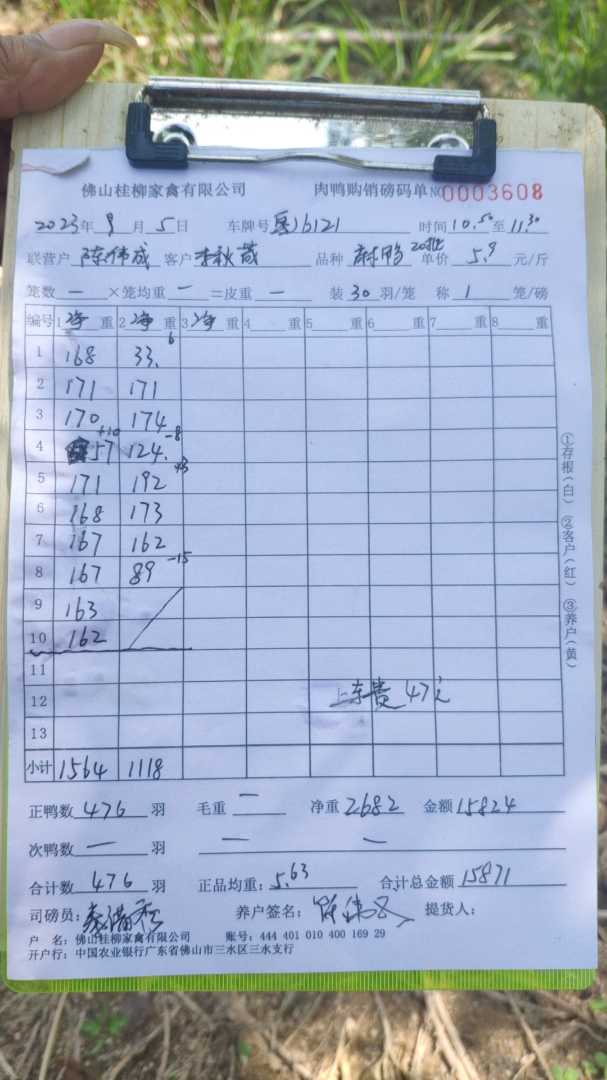 佛山桂柳家禽有限公司 肉鸭购销磅码单 NO 0003608
2023年 9 月 5 日 车牌号 粤J16121 时间 10.50 至 11.30
联营户 陈伟成 客户 李秋茂 品种 麻鸭 单价 5.9 元/斤
笼数 一 ×笼均重 一 =皮重 一 装 30 羽/笼 称 1 笼/磅
编号 1 净 重 2 净 重 3 净 重 4 重 5 重 6 重 7 重 8 重
1 168 33. 6
2 171 171
3 170 174
4 57 +10 124. -8
5 171 192 +3
6 168 173
7 167 162
8 167 89 -15
9 163
10 162
11
12 上车费 47元
13
小计 1564 1118
①存根(白) ②客户(红) ③养户(黄)
正鸭数 476 羽 毛重 一 净重 2682 金额 15824
次鸭数 一 羽 一 一
合计数 476 羽 正品均重: 5.63 合计总金额 15871
司磅员: 养户签名: 提货人:
户 名: 佛山桂柳家禽有限公司 账号: 444 401 010 400 169 29
开户行: 中国农业银行广东省佛山市三水区三水支行